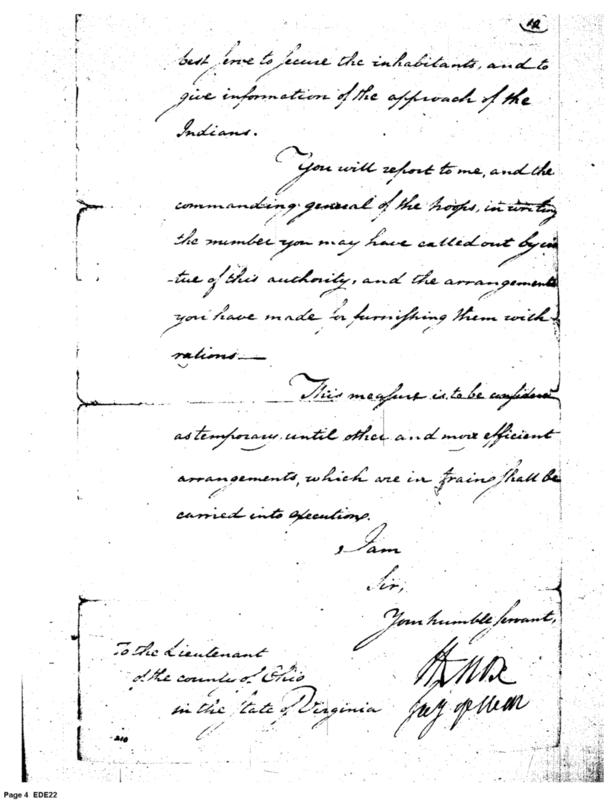 12
best serve to secure the inhabitants, and to
give information of the approach of the
Indians.
You will report to me, and the
commanding general of the troops, in writing
the number you may have called out by vir
-tue of this authority, and the arrangements
you have made for furnishing them with
rations—
This measure is to be considered
as temporary until other and more efficient
arrangements, which are in train shall be
carried into execution.
I am
Sir,
Your humble servant,
HKnox
Secy of War
To the Lieutenant
of the county of Ohio
in the State of Virginia
210
Page 4 EDE22